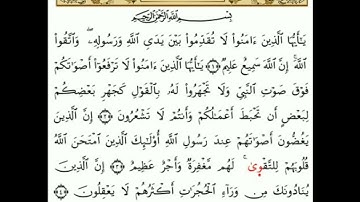 بِسْمِ ٱللَّهِ ٱلرَّحْمَٰنِ ٱلرَّحِيمِ
يَٰٓأَيُّهَا ٱلَّذِينَ ءَامَنُوا۟ لَا تُقَدِّمُوا۟ بَيْنَ يَدَىِ ٱللَّهِ وَرَسُولِهِۦ ۖ وَٱتَّقُوا۟
ٱللَّهَ ۚ إِنَّ ٱللَّهَ سَمِيعٌ عَلِيمٌ ﴿١﴾ يَٰٓأَيُّهَا ٱلَّذِينَ ءَامَنُوا۟ لَا تَرْفَعُوٓا۟ أَصْوَٰتَكُمْ
فَوْقَ صَوْتِ ٱلنَّبِىِّ وَلَا تَجْهَرُوا۟ لَهُۥ بِٱلْقَوْلِ كَجَهْرِ بَعْضِكُمْ
لِبَعْضٍ أَن تَحْبَطَ أَعْمَٰلُكُمْ وَأَنتُمْ لَا تَشْعُرُونَ ﴿٢﴾ إِنَّ ٱلَّذِينَ
يَغُضُّونَ أَصْوَٰتَهُمْ عِندَ رَسُولِ ٱللَّهِ أُو۟لَٰٓئِكَ ٱلَّذِينَ ٱمْتَحَنَ ٱللَّهُ
قُلُوبَهُمْ لِلتَّقْوَىٰ ۚ لَهُم مَّغْفِرَةٌ وَأَجْرٌ عَظِيمٌ ﴿٣﴾ إِنَّ ٱلَّذِينَ
يُنَادُونَكَ مِن وَرَآءِ ٱلْحُجُرَٰتِ أَكْثَرُهُمْ لَا يَعْقِلُونَ ﴿٤﴾